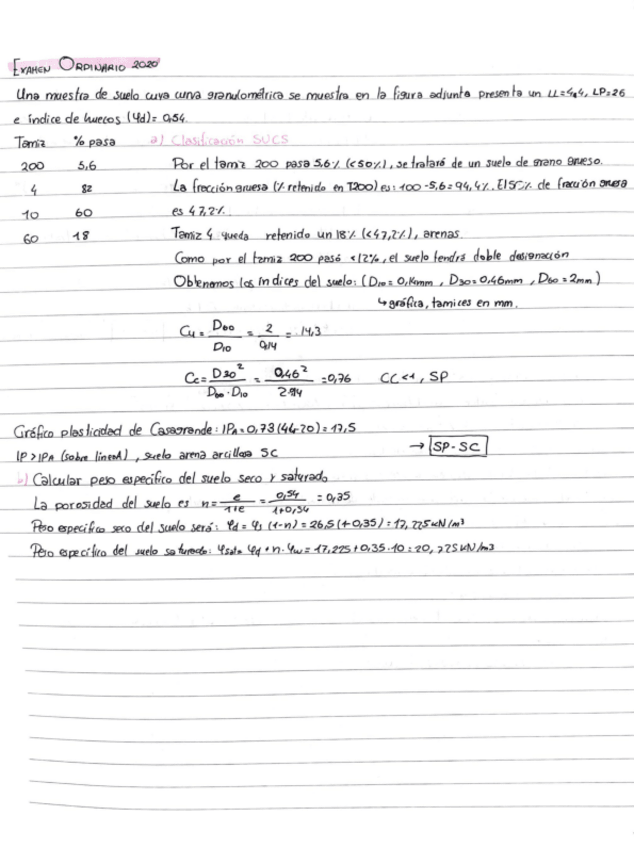 EXAMEN ORDINARIO 2020
Una muestra de suelo cuya curva granulométrica se muestra en la figura adjunta presenta un LL=44, LP=26
e índice de huecos (γd)= 0,54.
Tamiz % pasa a) Clasificación SUCS
200 5,6 Por el tamiz 200 pasa 5,6% (<50%), se tratará de un suelo de grano grueso.
4 82 La fracción gruesa (% retenido en T200) es: 100-5,6=94,4%. El 50% de fracción gruesa
10 60 es 47,2%.
60 18 Tamiz 4 queda retenido un 18% (<47,2%), arenas.
Como por el tamiz 200 pasó <12%, el suelo tendrá doble designación
Obtenemos los índices del suelo: (D10= 0,14mm, D30=0,46mm, D60=2mm)
↳ gráfica, tamices en mm.
Cu = D60/D10 = 2/0,14 = 14,3
Cc= D30²/D60·D10 = 0,46²/2·0,14 =0,76 CC<1, SP
Gráfico plasticidad de Casagrande: IPA=0,73(44-20)=17,5
IP>IPA (sobre línea A), suelo arena arcillosa SC → SP-SC
b) Calcular peso específico del suelo seco y saturado
La porosidad del suelo es n= e/1+e = 0,54/1+0,54 = 0,35
Peso específico seco del suelo será: γd = γs (1-n) = 26,5(1-0,35)=17,225 kN/m³
Peso específico del suelo saturado: γsat= γd + n·γw = 17,225+0,35·10=20,725 kN/m3